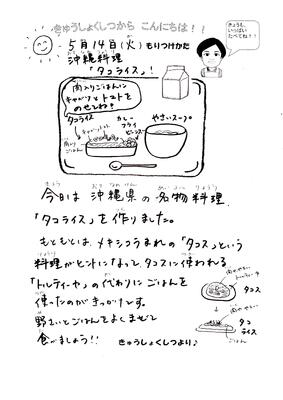 きゅうしょくしつから こんにちは！！
きょうも、
いっぱい
たべてね！！
5月14日(火) もりつけかた
沖縄料理
「タコライス」！
肉入りごはんに
キャベツとトマトを
のせてね！
タコライス
カレー
フライ
ビーンズ
やさいスープ
肉入り
ごはん
きょう おきなわけん めいぶつりょうり
今日は 沖縄県の 名物料理、
「タコライス」を 作りました。
もともとは、メキシコうまれの「タコス」という
りょうり
料理がヒントになって、タコスに使われる
「トルティーヤ」の代わりにごはんを
使ったのがきっかけです。
野さいとごはんをよくまぜて
食べましょう！！
きゅうしょくしつより♪
タコス
タコ
ライス
ごはん